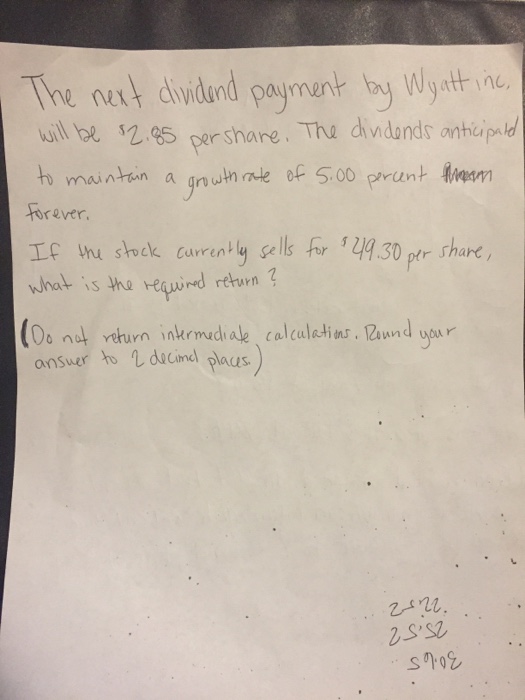 The next dividend payment by Wyatt inc.
will be $2.85 per share. The dividends anticipated
to maintain a growth rate of 5.00 percent
forever.
If the stock currently sells for $49.30 per share,
what is the required return?
(Do not return intermediate calculations. Round your
answer to 2 decimal places.)
30.65
25.52